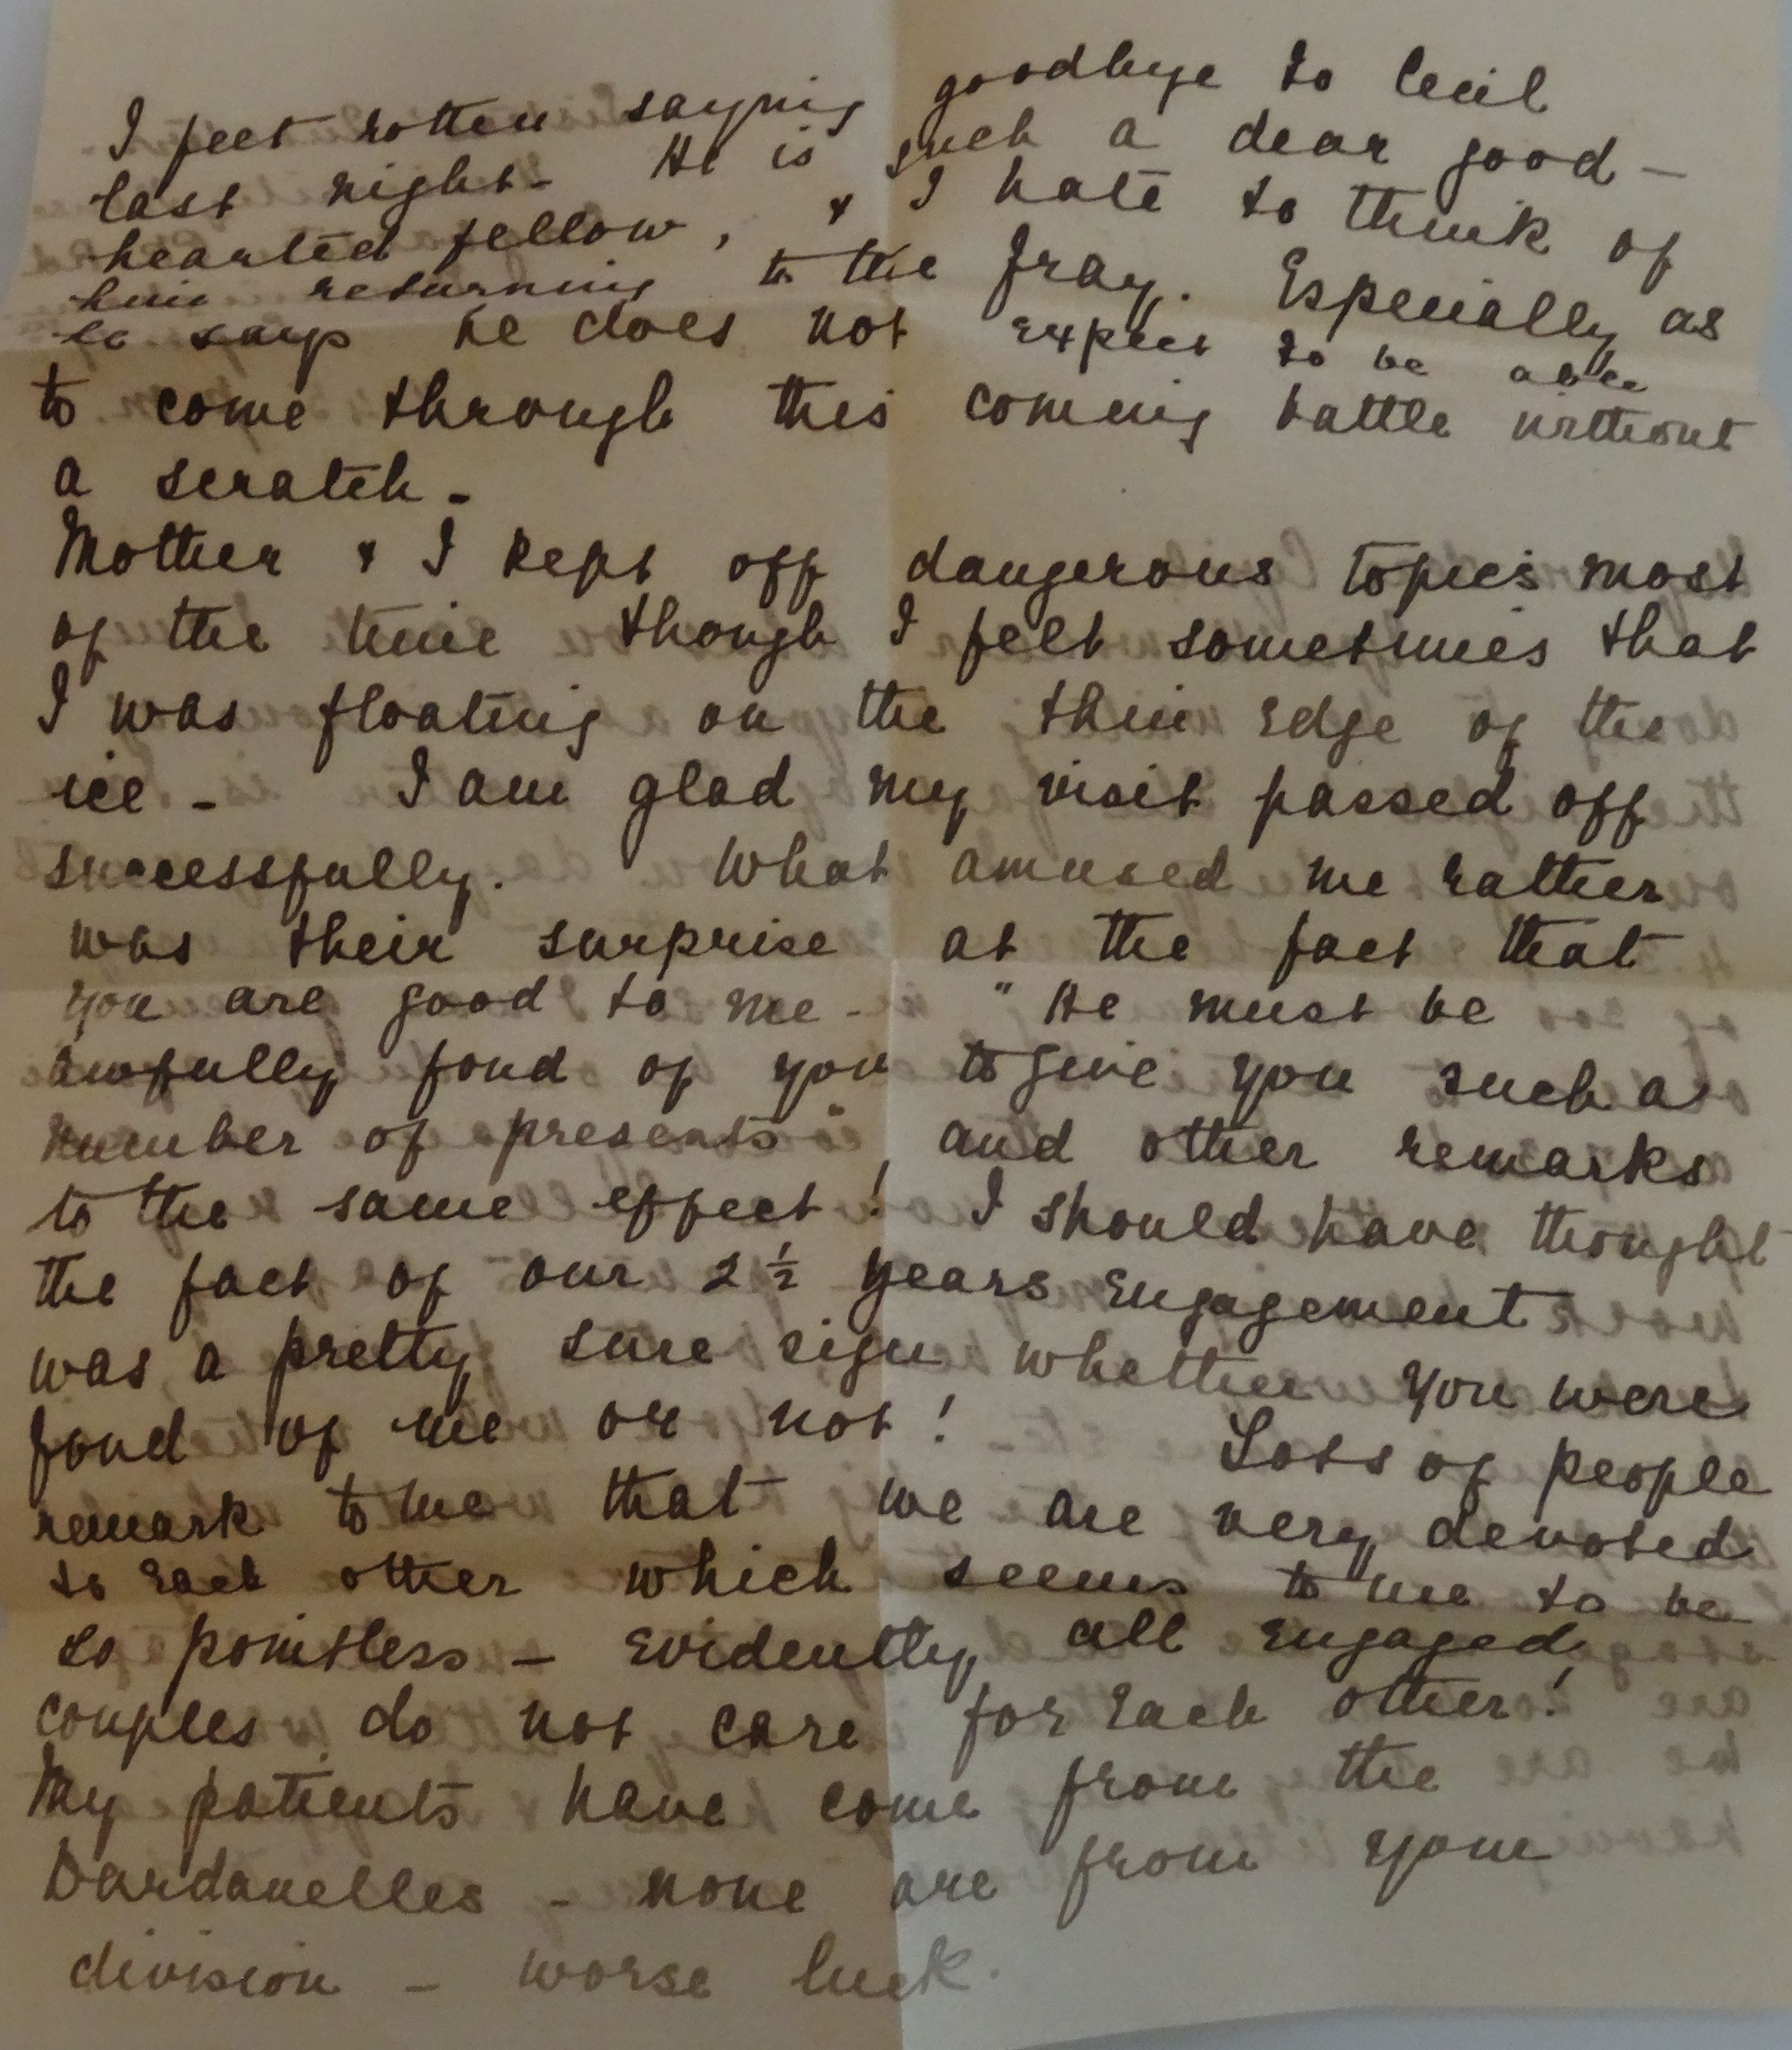 I feel rotten saying goodbye to Cecil
last night - He is such a dear good -
hearted fellow, & I hate to think of
him returning to the fray. Especially as
he says he does not expect to be able
to come through this coming battle without
a scratch -
Mother & I kept off dangerous topics most
of the time though I felt sometimes that
I was floating on the thin edge of the
ice - I am glad my visit passed off
successfully. What amused me rather
was their surprise at the fact that
you are good to me - "He must be
awfully fond of you to give you such a
number of presents" and other remarks
to the same effect! I should have thought
the fact of our 2 ½ years engagement
was a pretty sure sign whether you were
fond of me or not! Lots of people
remark to me that we are very devoted
to each other which seems to me to be
so pointless - evidently all engaged
couples do not care for each other!
My patients have come from the
Dardanelles - none are from your
division - worse luck.